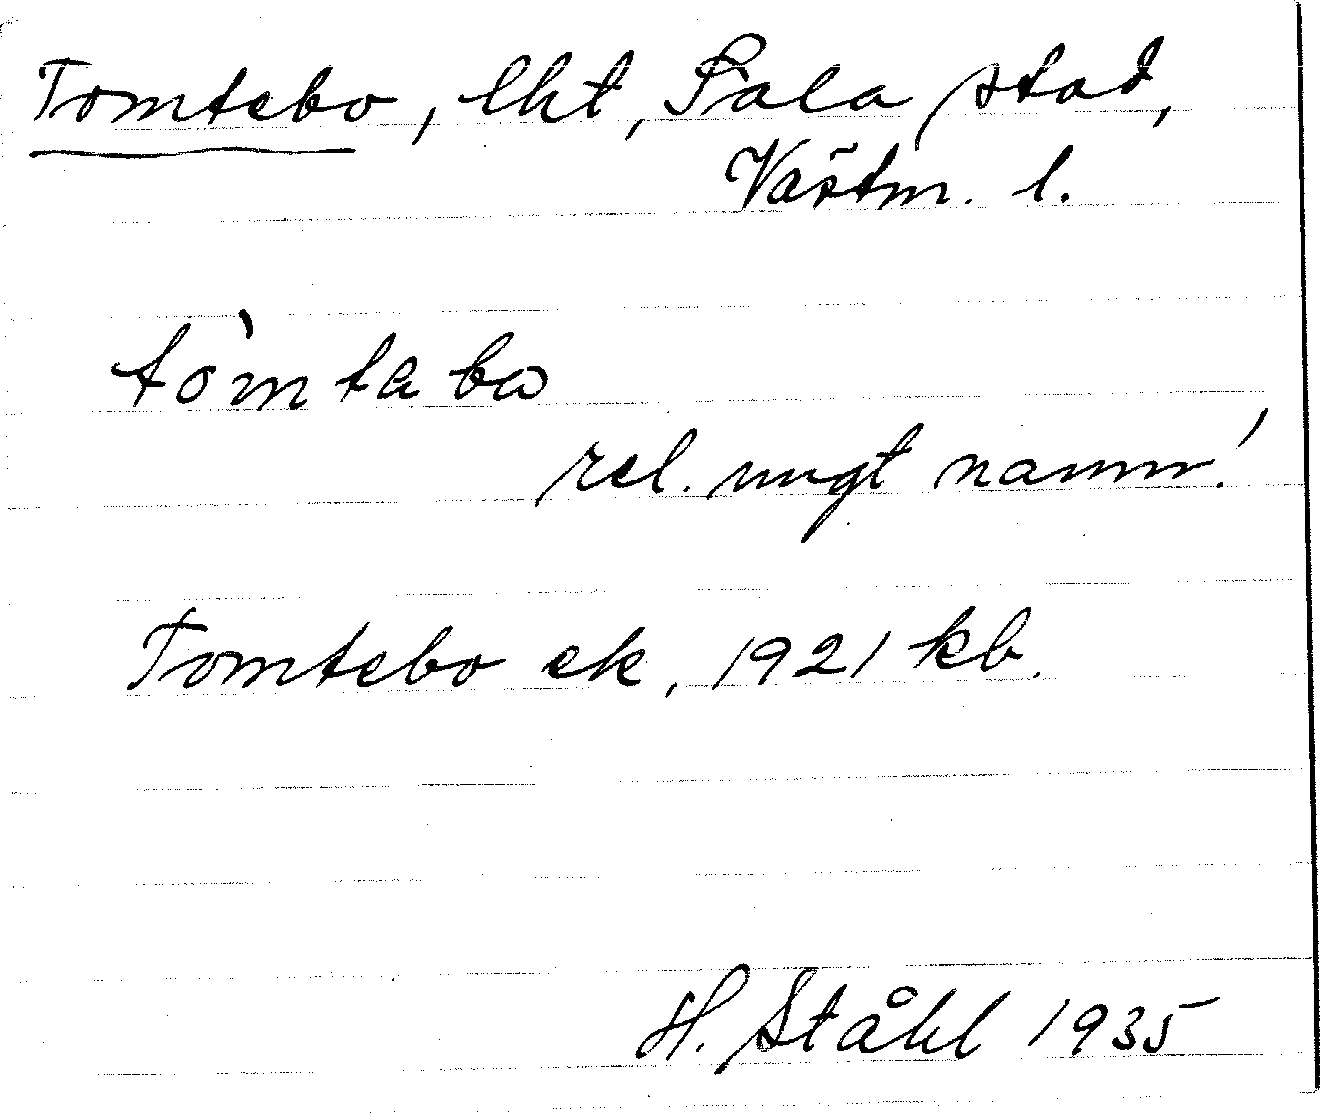 Tomtebo, lht, Sala stad,
Västm. l.
tòmtabω
rel. ungt namn!
Tomtebo ek, 1921 kb.
H. Ståhl 1935